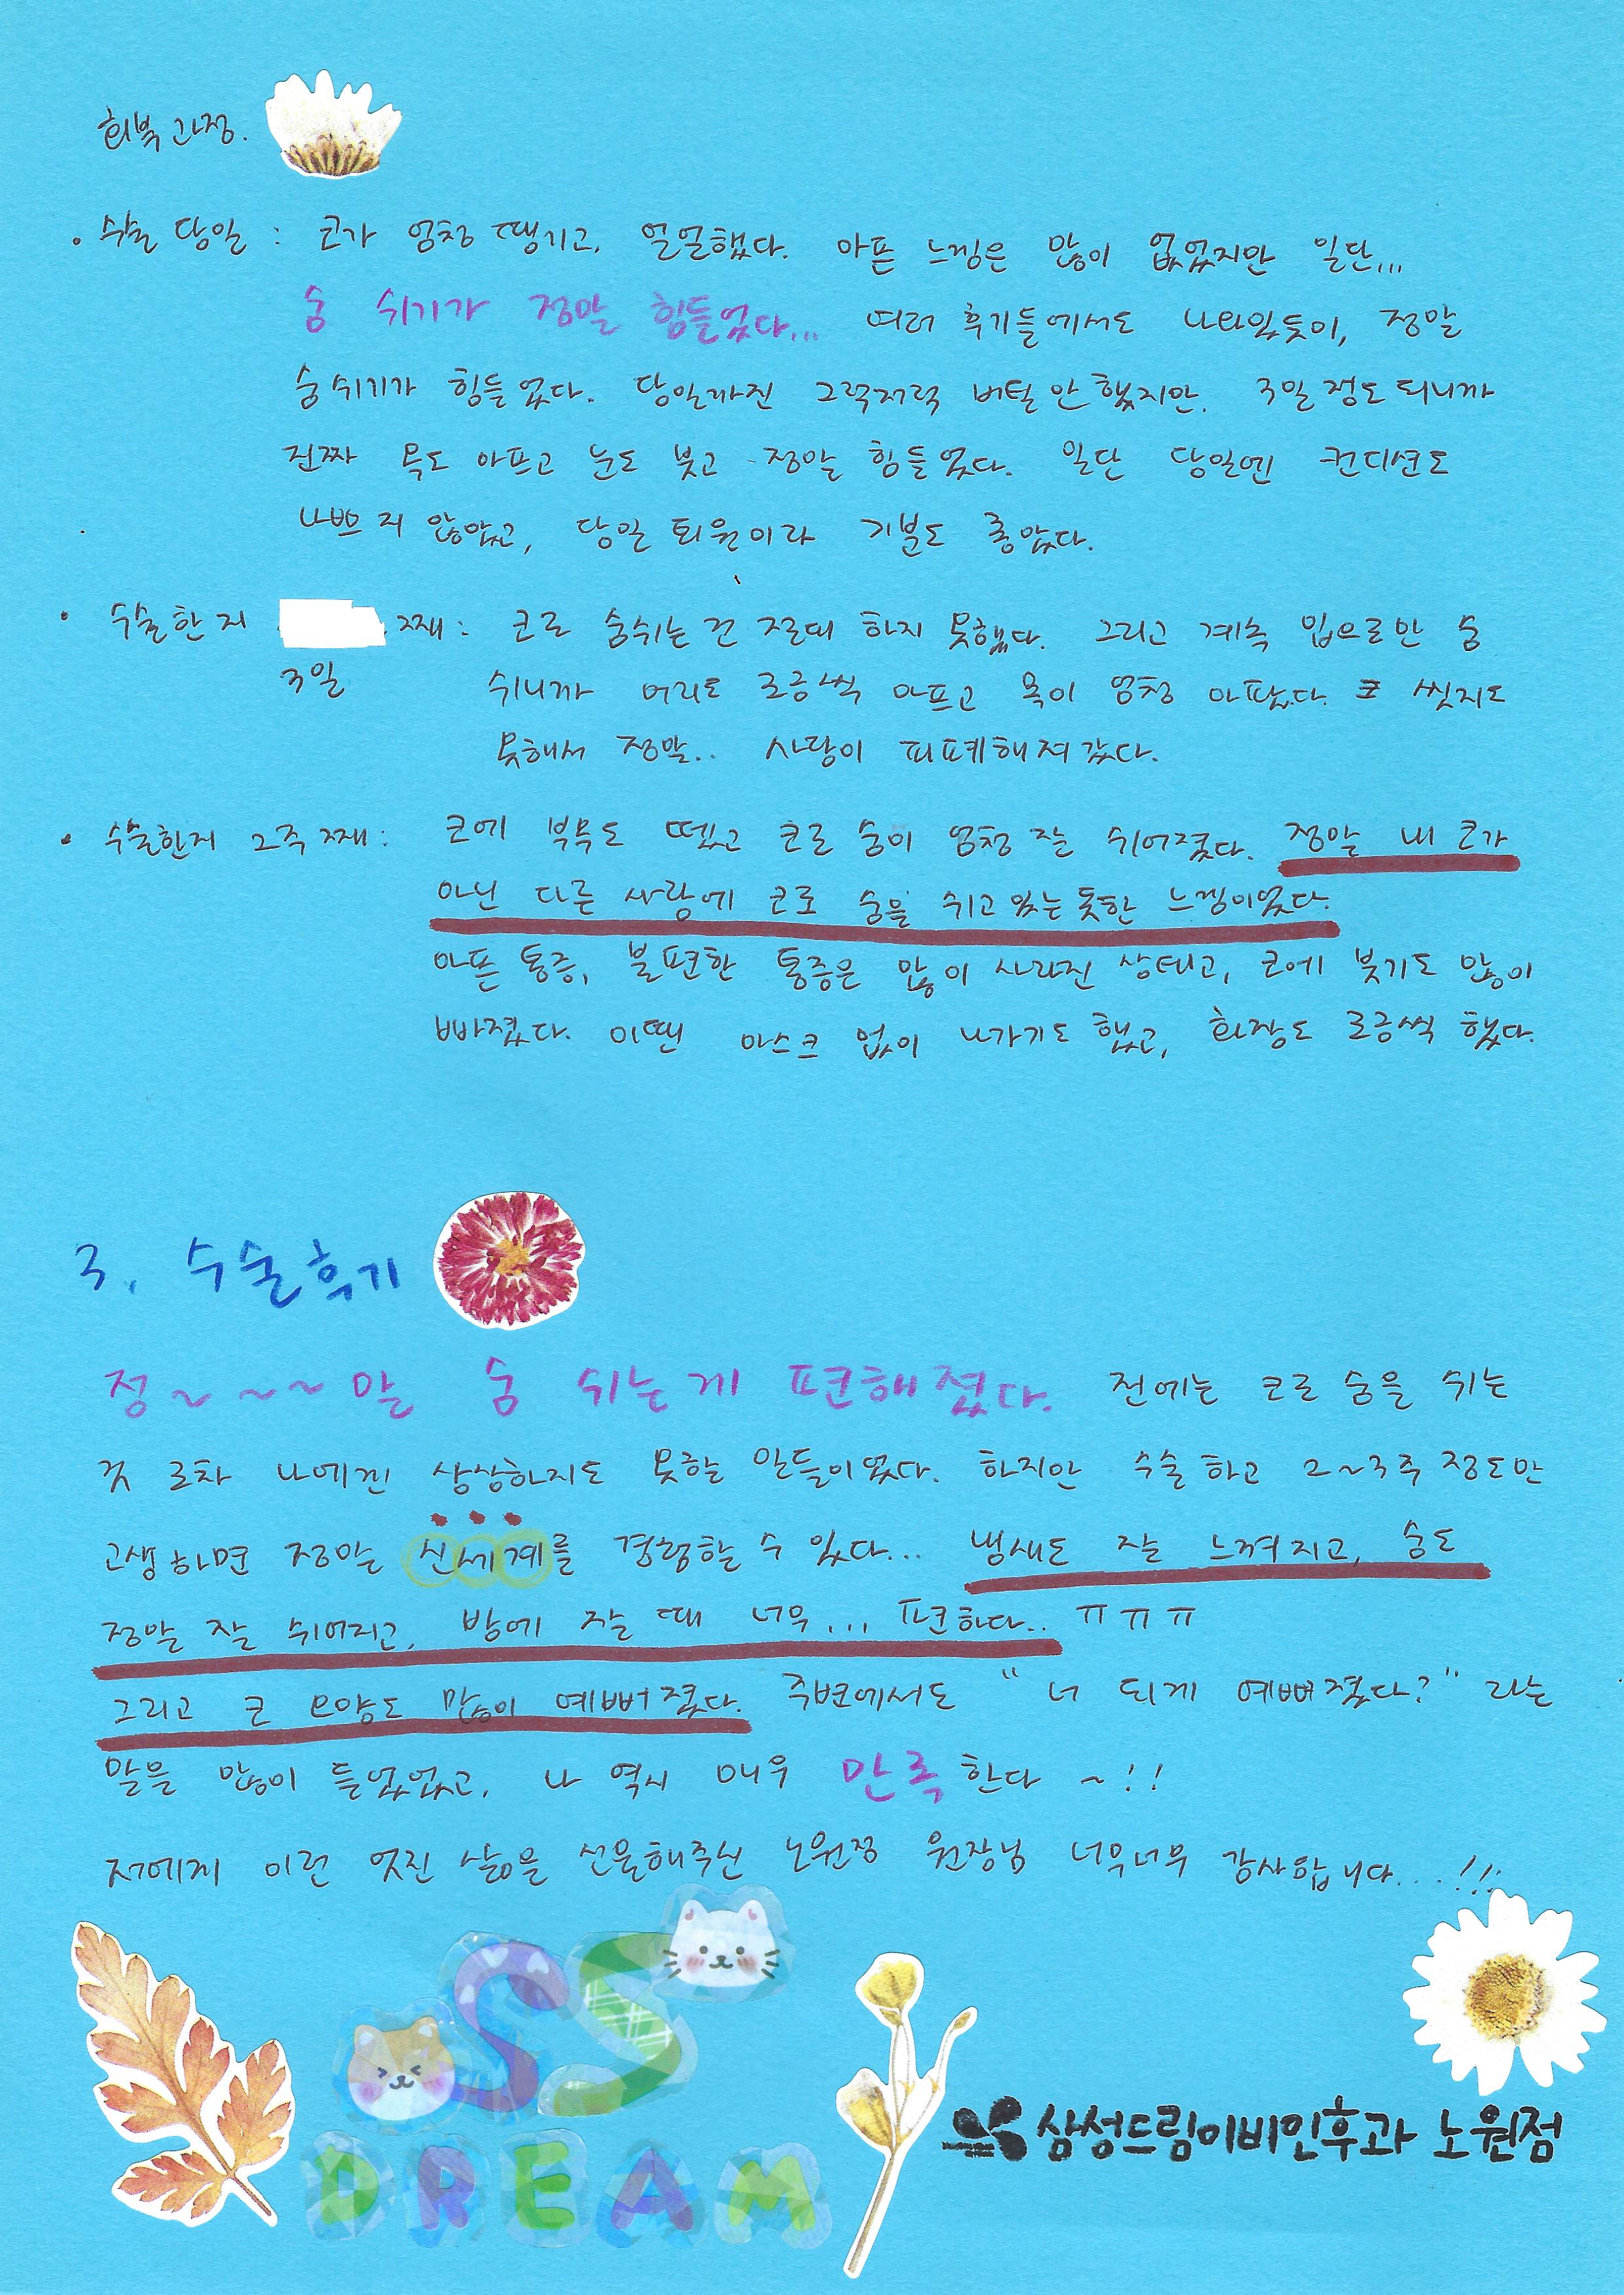 회복과정.
• 수술 당일 : 코가 엄청 땡기고, 얼얼했다. 아픈 느낌은 많이 없었지만 일단...
숨 쉬기가 정말 힘들었다... 여러 후기들에서도 나와있듯이, 정말
숨쉬기가 힘들었다. 당일까진 그럭저럭 버틸만했지만. 3일 정도 되니까
진짜 목도 아프고 눈도 붓고 정말 힘들었다. 일단 당일엔 컨디션도
나쁘지 않았고, 당일 퇴원이라 기분도 좋았다.
• 수술한지 째 : 코로 숨쉬는건 절대 하지 못했다. 그리고 계속 입으로만 숨
3일 쉬니까 머리도 조금씩 아프고 목이 엄청 아팠다. 코 씻지도
못해서 정말.. 사람이 피폐해져갔다.
• 수술한지 2주째 : 코에 부목도 뗐고 코로 숨이 엄청 잘 쉬어졌다. 정말 내 코가
아닌 다른 사람에 코로 숨을 쉬고있는듯한 느낌이었다.
아픈 통증, 불편한 통증은 많이 사라진 상태고, 코에 붓기도 많이
빠졌다. 이땐 마스크 없이 나가기도 했고, 화장도 조금씩 했다.
3. 수술후기
정~~~말 숨 쉬는게 편해졌다. 전에는 코로 숨을 쉬는
것 조차 나에겐 상상하지도 못할 일들이었다. 하지만 수술하고 2~3주 정도만
고생하면 정말 신세계를 경험할 수 있다... 냄새도 잘 느껴지고, 숨도
정말 잘 쉬어지고, 밤에 잘 때 너무... 편하다.. ㅠㅠㅠ
그리고 코 모양도 많이 예뻐졌다. 주변에서도 "너 되게 예뻐졌다?" 라는
말을 많이 들었었고, 나 역시 매우 만족한다 ~!!
저에게 이런 멋진 삶을 선물해주신 노원점 원장님 너무너무 감사합니다...!!!
SS
DREAM
삼성드림이비인후과 노원점